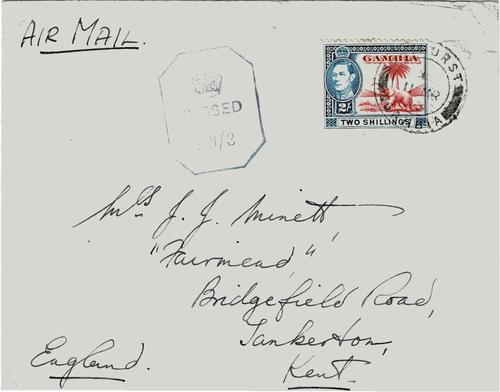 AIR MAIL.
GAMBIA
2/-
TWO SHILLINGS
Mrs J. J. Minett,
"Fairmead",
Bridgefield Road,
Tankerton,
England.
Kent.